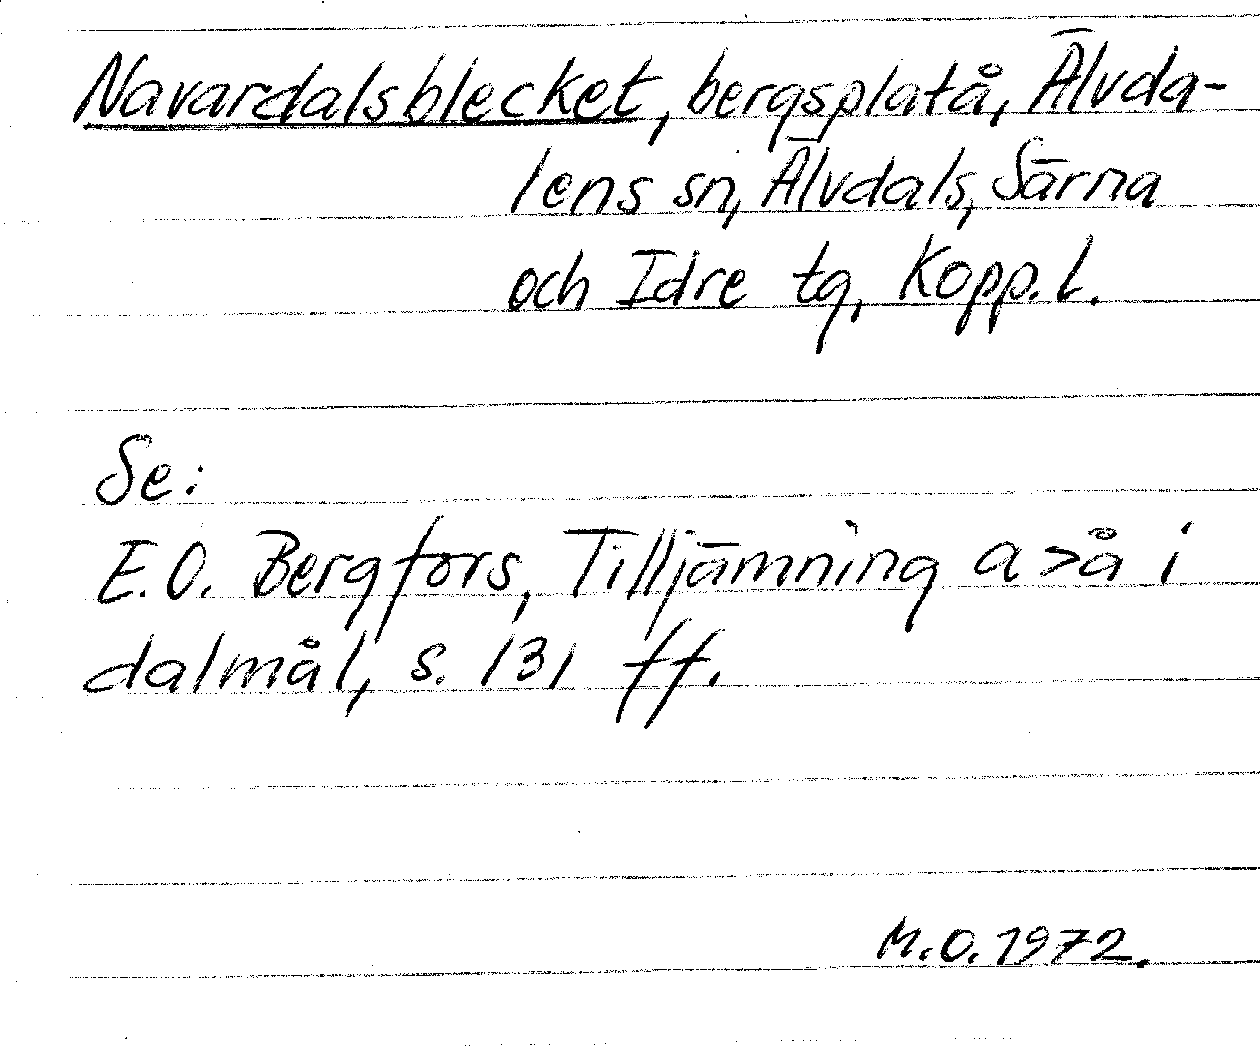 Navardalsblecket, bergsplatå, Älvda-
lens sn, Älvdals, Särna
och Idre tg, Kopp. l.
Se:
E.O. Bergfors, Tilljämning a>å i
dalmål, s. 131 ff.
M.O. 1972.